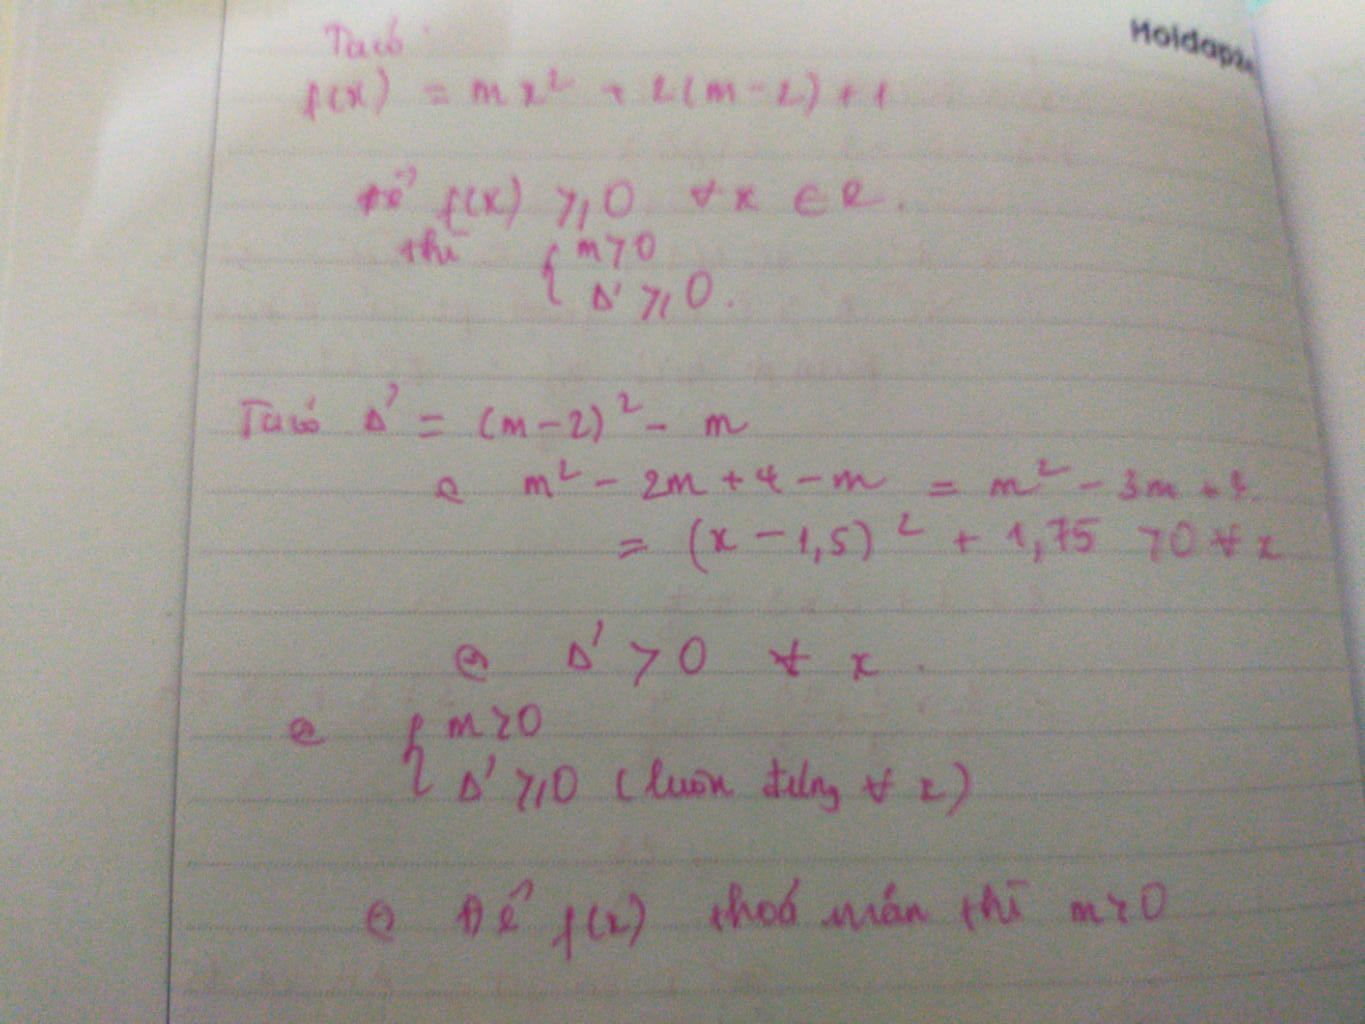 Hoidap2
Ta có
f(x) = mx² + 2(m-2) + 1
để f(x) ≥ 0 ∀ x ∈ R.
thì { m > 0
Δ' ≥ 0.
Ta có Δ' = (m-2)² - m
⇔ m² - 2m + 4 - m = m² - 3m + 4
= (x - 1,5)² + 1,75 > 0 ∀ x
⇔ Δ' > 0 ∀ x.
⇔ { m > 0
Δ' ≥ 0 (luôn đúng ∀ x)
⇔ Để f(x) thoả mãn thì m > 0